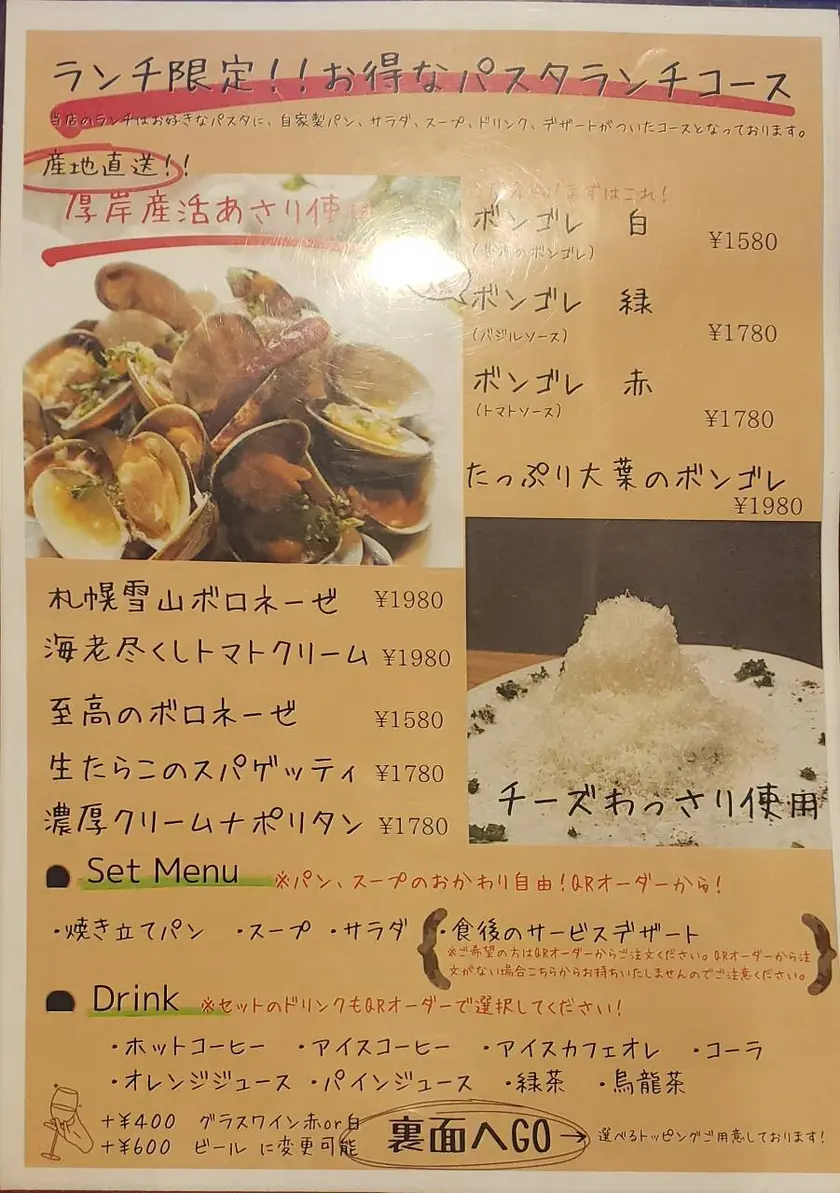 ランチ限定!!お得なパスタランチコース
当店のランチはお好きなパスタに、自家製パン、サラダ、スープ、ドリンク、デザートがついたコースとなっております。
産地直送!!
厚岸産活あさり使用
まずはこれ!
ボンゴレ 白
¥1580
ボンゴレ 緑
(バジルソース)
¥1780
ボンゴレ 赤
(トマトソース)
¥1780
たっぷり大葉のボンゴレ
¥1980
札幌雪山ボロネーゼ ¥1980
海老尽くしトマトクリーム ¥1980
至高のボロネーゼ ¥1580
生たらこのスパゲッティ ¥1780
濃厚クリームナポリタン ¥1780
チーズわっさり使用
Set Menu ※パン、スープのおかわり自由!QRオーダーから!
・焼き立てパン ・スープ ・サラダ ・食後のサービスデザート
※ご希望の方はQRオーダーからご注文ください。QRオーダーから注
文がない場合こちらからお持ちいたしませんのでご注意ください。
Drink ※セットのドリンクもQRオーダーで選択してください!
・ホットコーヒー ・アイスコーヒー ・アイスカフェオレ ・コーラ
・オレンジジュース ・パインジュース ・緑茶 ・烏龍茶
+¥400 グラスワイン赤or白
+¥600 ビール に変更可能
裏面へGO→ 選べるトッピングご用意しております!